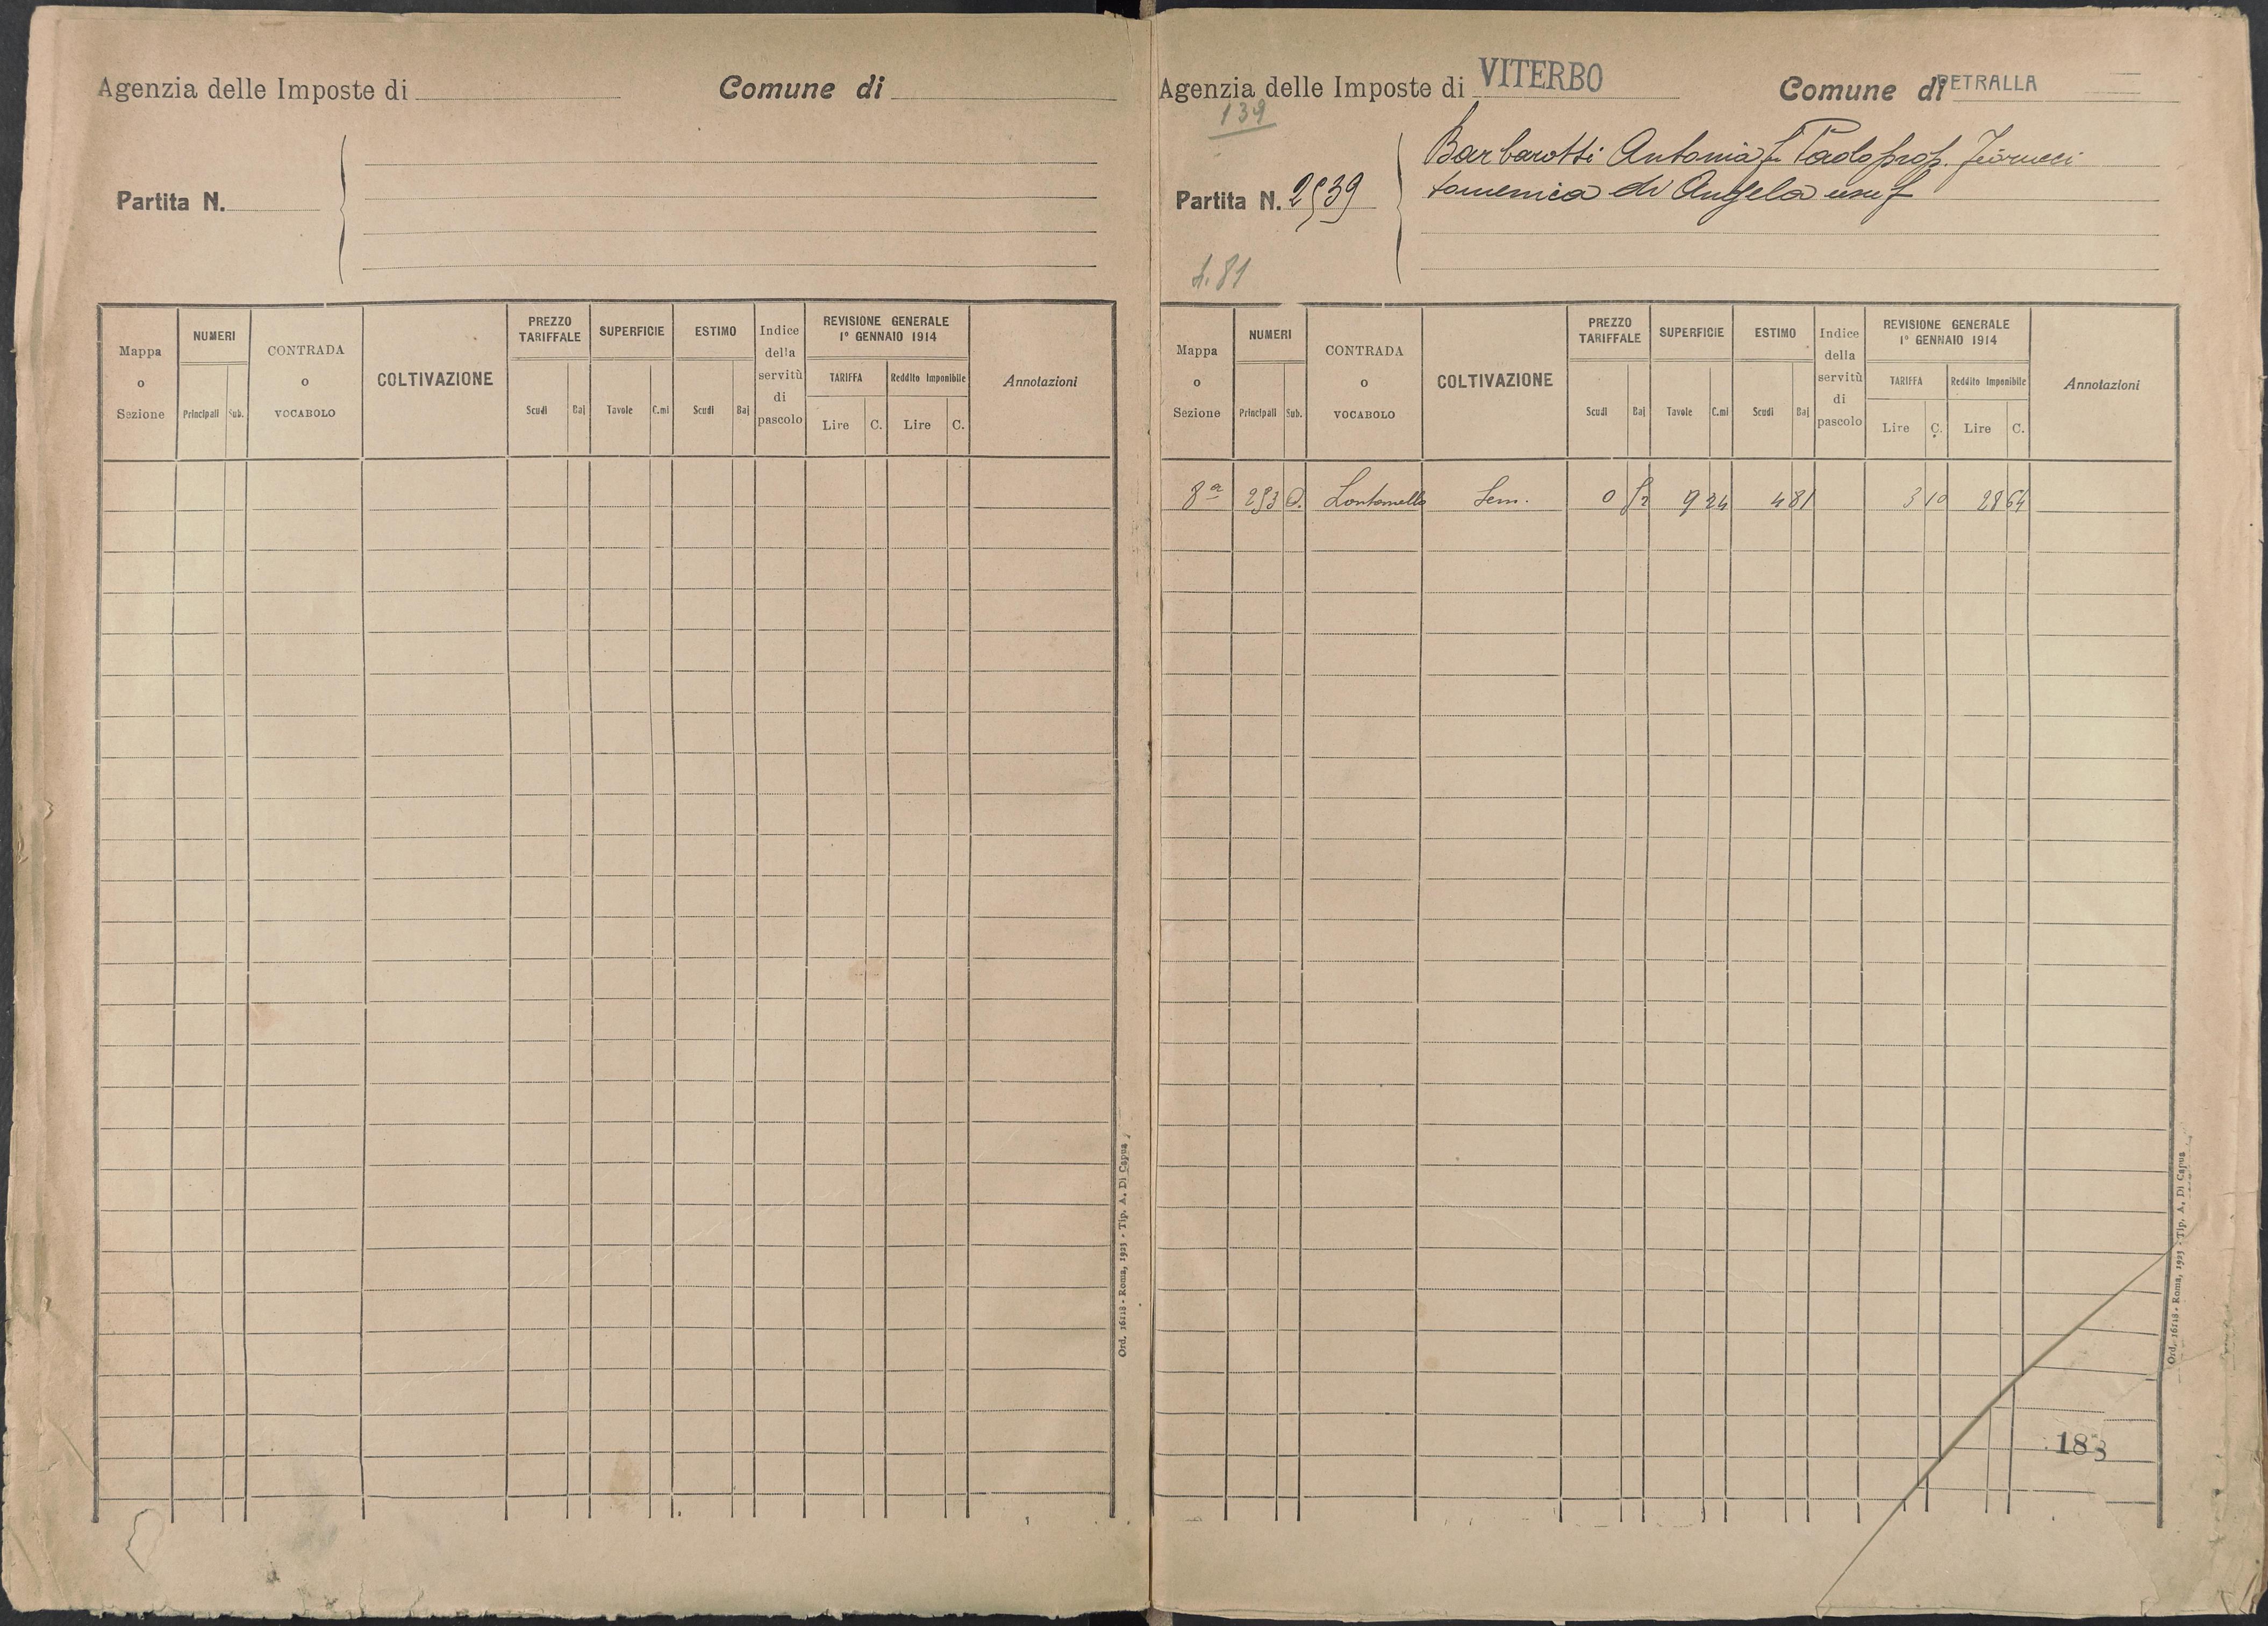 Agenzia delle Imposte di
Comune di
Partita N.
Mappa o Sezione
NUMERI
Principali
Sub.
CONTRADA o VOCABOLO
COLTIVAZIONE
PREZZO TARIFFALE
Scudi
Baj
SUPERFICIE
Tavole
C.mi
ESTIMO
Scudi
Baj
Indice della servitù di pascolo
REVISIONE GENERALE
1° GENNAIO 1914
TARIFFA
Lire
C.
Reddito Imponibile
Lire
C.
Annotazioni
Ord. 16118 - Roma, 1923 - Tip. A. Di Capua
Agenzia delle Imposte di VITERBO
Comune di VETRALLA
139
Barbarotti Antonia fu Paolo prop. Fiorucci
Partita N. 2539
Domenica di Angela usuf
4.81
Mappa o Sezione
NUMERI
Principali
Sub.
CONTRADA o VOCABOLO
COLTIVAZIONE
PREZZO TARIFFALE
Scudi
Baj
SUPERFICIE
Tavole
C.mi
ESTIMO
Scudi
Baj
Indice della servitù di pascolo
REVISIONE GENERALE
1° GENNAIO 1914
TARIFFA
Lire
C.
Reddito Imponibile
Lire
C.
Annotazioni
8a 253 Sem. 0 52 9 24 4 81 3 10 28 64
Ord. 16118 - Roma, 1923 - Tip. A. Di Capua
183